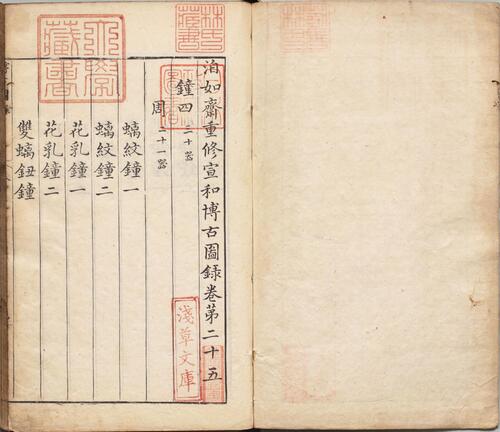 泊如齋重修宣和博古圖錄卷第二十五
鐘四 二十噐
周 二十一噐
螭紋鐘一
螭紋鐘二
花乳鐘一
花乳鐘二
雙螭鈕鐘
林氏藏書
大學藏書
淺草文庫